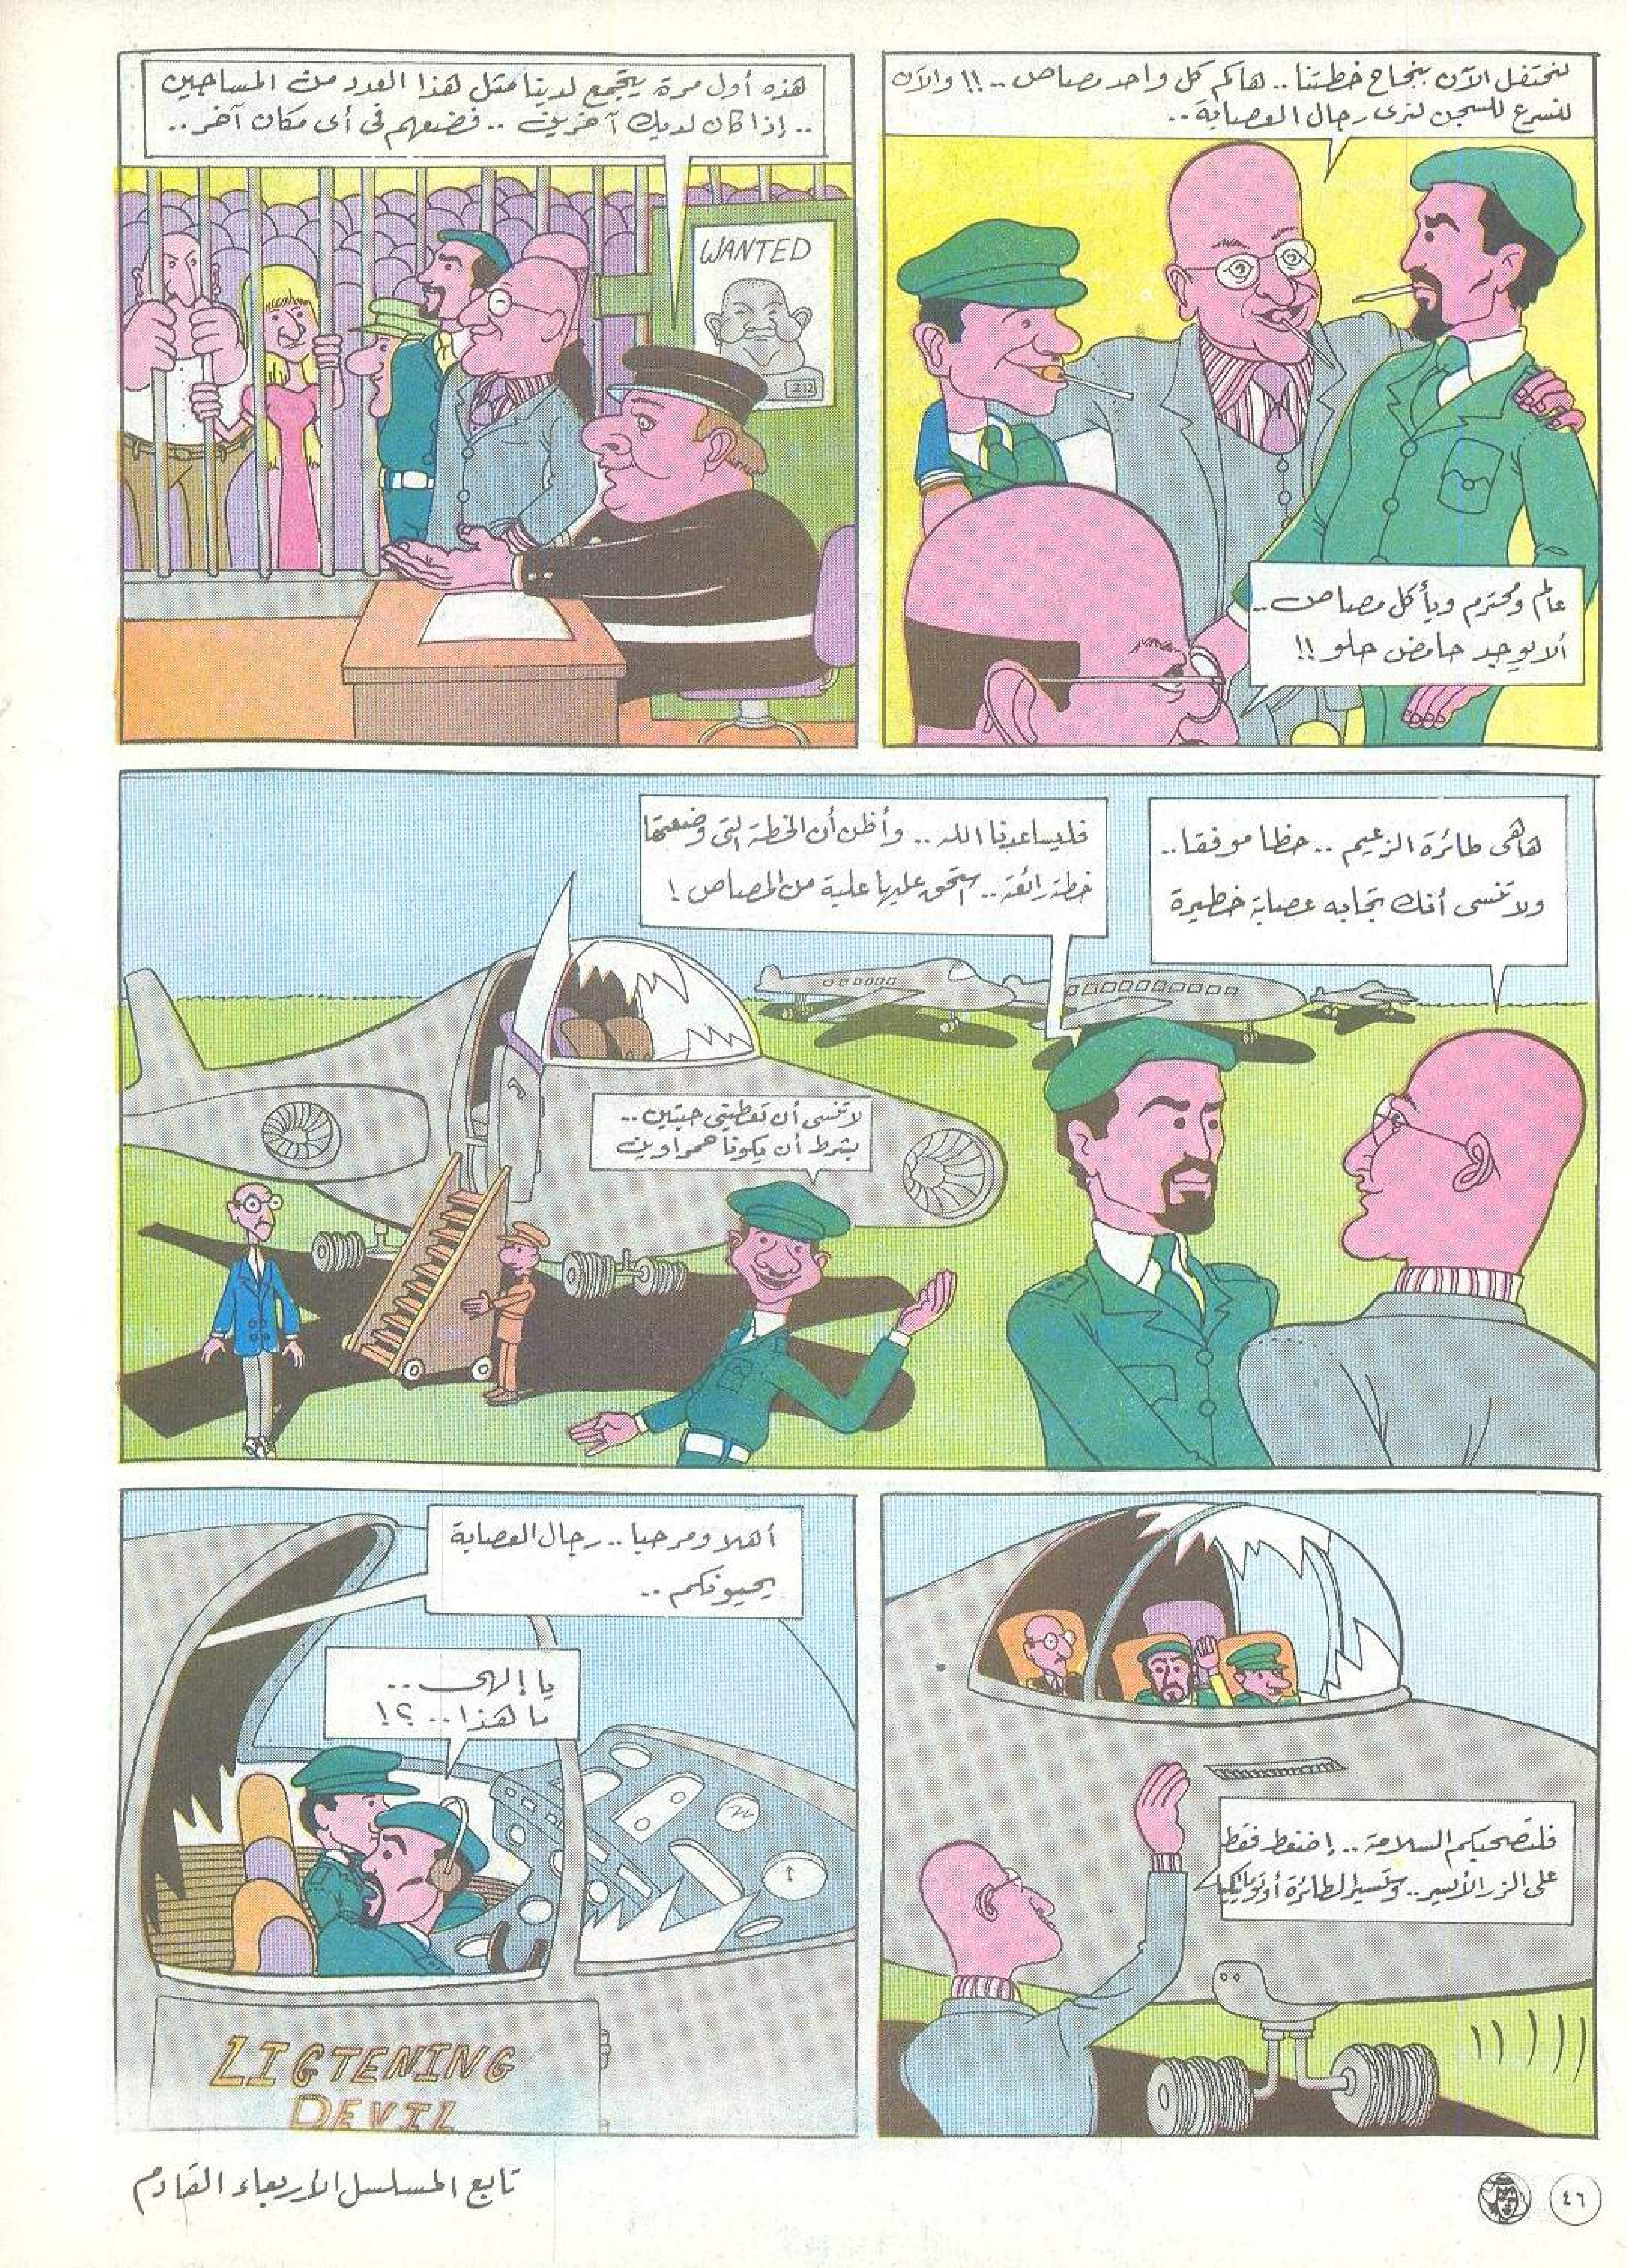 لنحتفل الآن بنجاح خطتنا .. هاكم كل واحد مصاص .. !! والآن
لنسرع للسجن لنرى رجال العصابة ..
عالم ومحترم ويأكل مصاص ..
ألا يوجد حامض حلو !!
هذه أول مرة يتجمع لدينا مثل هذا العدد من المساجين
.. إذا كان لديك آخرين .. فضعهم فى أى مكان آخر ..
WANTED
212
هاهى طائرة الزعيم .. حظا موفقا ..
ولا تنسى أنك تجابه عصابة خطيرة
فليساعدنا الله .. وأظن أن الخطة التى وضعتها
خطة رائعة .. استحق عليها علبة من المصاص !
لا تنسى أن تعطينى حبتين ..
بشرط أن يكونا حمراوين
فلتصحبكم السلامة .. إضغط فقط
على الزر الأيسر .. وتسير الطائرة أوتوماتيكيا
أهلا ومرحبا .. رجال العصابة
يحيونكم ..
يا إلهى ..
ما هذا .. ؟!
LIGTENING
DEVIL
تابع المسلسل الأربعاء القادم
٤٦